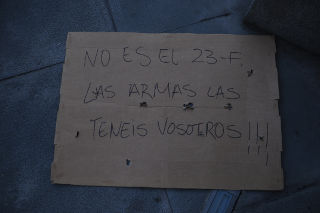 NO ES EL 23-F.
LAS ARMAS LAS
TENEIS VOSOTROS !!!